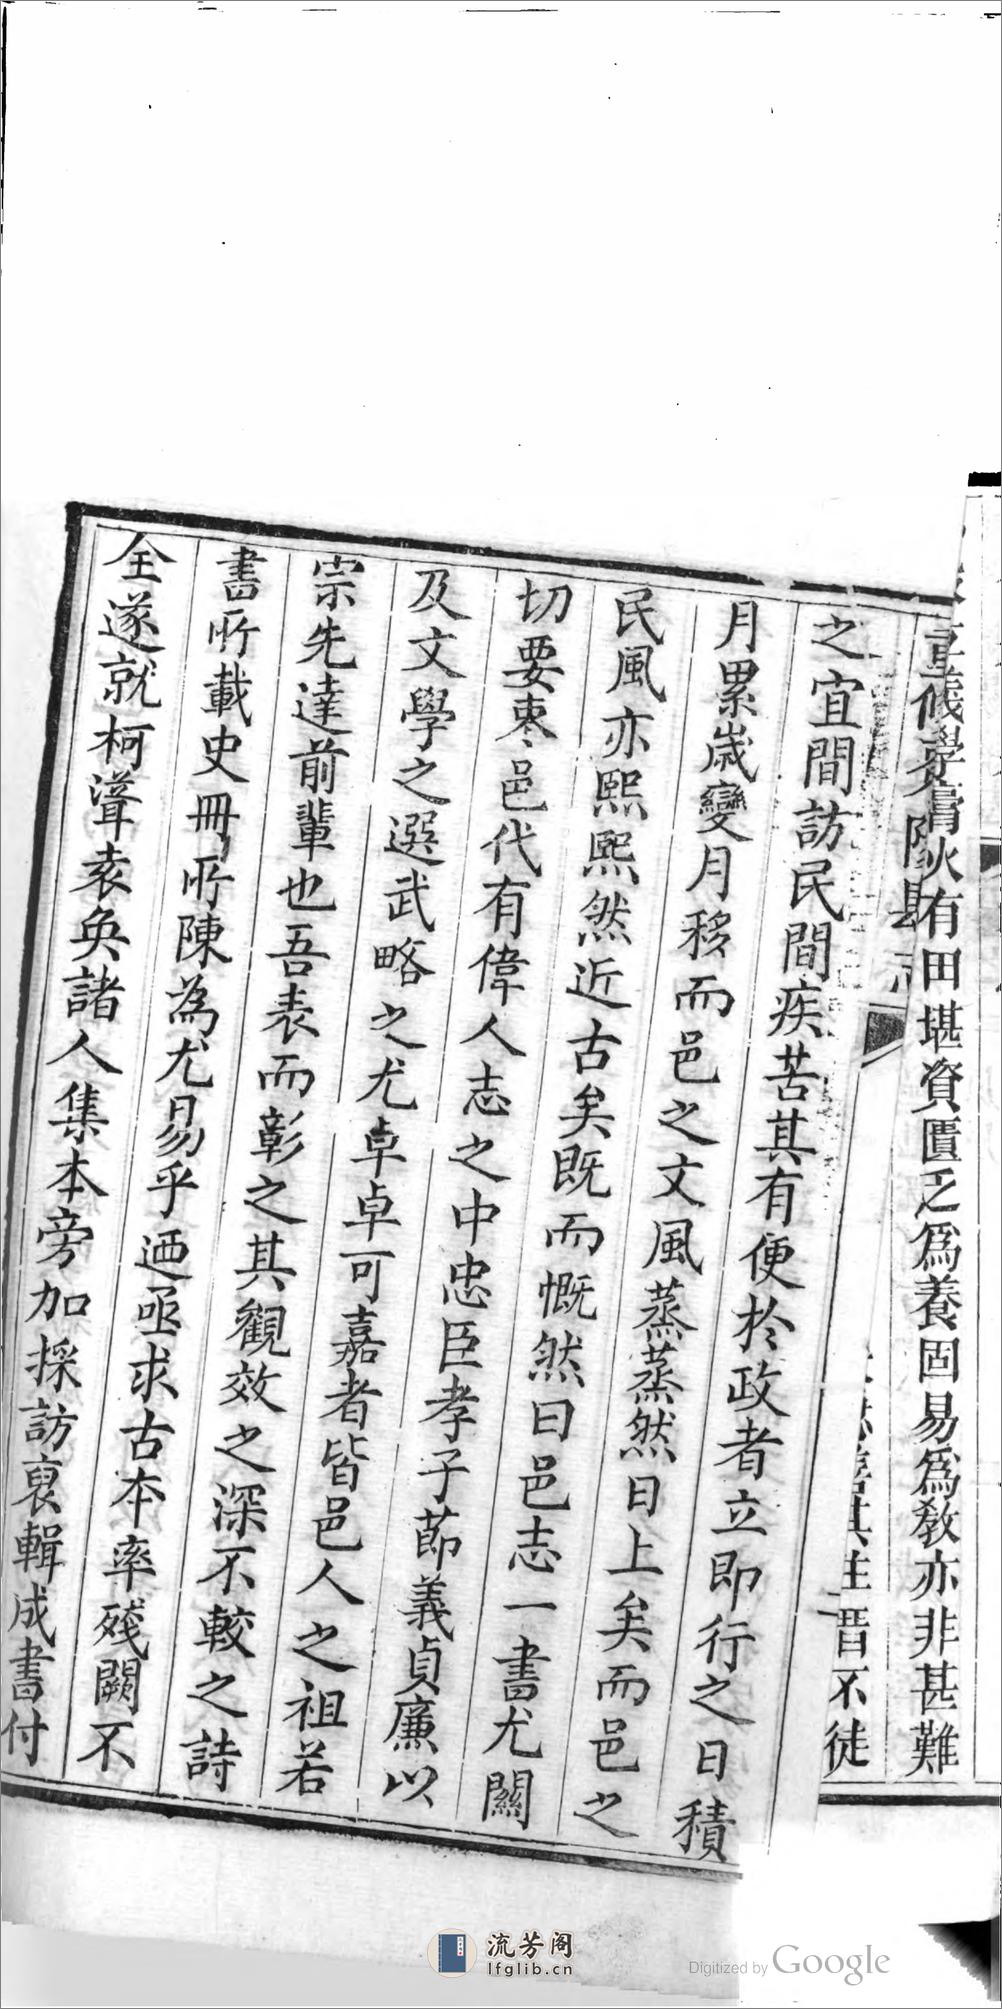 有田堪資匱乏爲養固易爲教亦非甚難
其生晋不徒
之宜間訪民間疾苦其有便於政者立即行之日積
月累歳變月移而邑之文風蒸蒸然日上矣而邑之
民風亦熙熙然近古矣既而慨然曰邑志一書尤關
切要枣邑代有偉人志之中忠臣孝子節義貞廉以
及文學之選武略之尤卓卓可嘉者皆邑人之祖若
宗先達前輩也吾表而彰之其觀效之深不較之詩
書所載史冊所陳為尤易乎迺亟求古本率殘闕不
全遂就柯濸袁奐諸人集本旁加採訪裒輯成書付
流芳阁
lfglib.cn
Digitized by Google